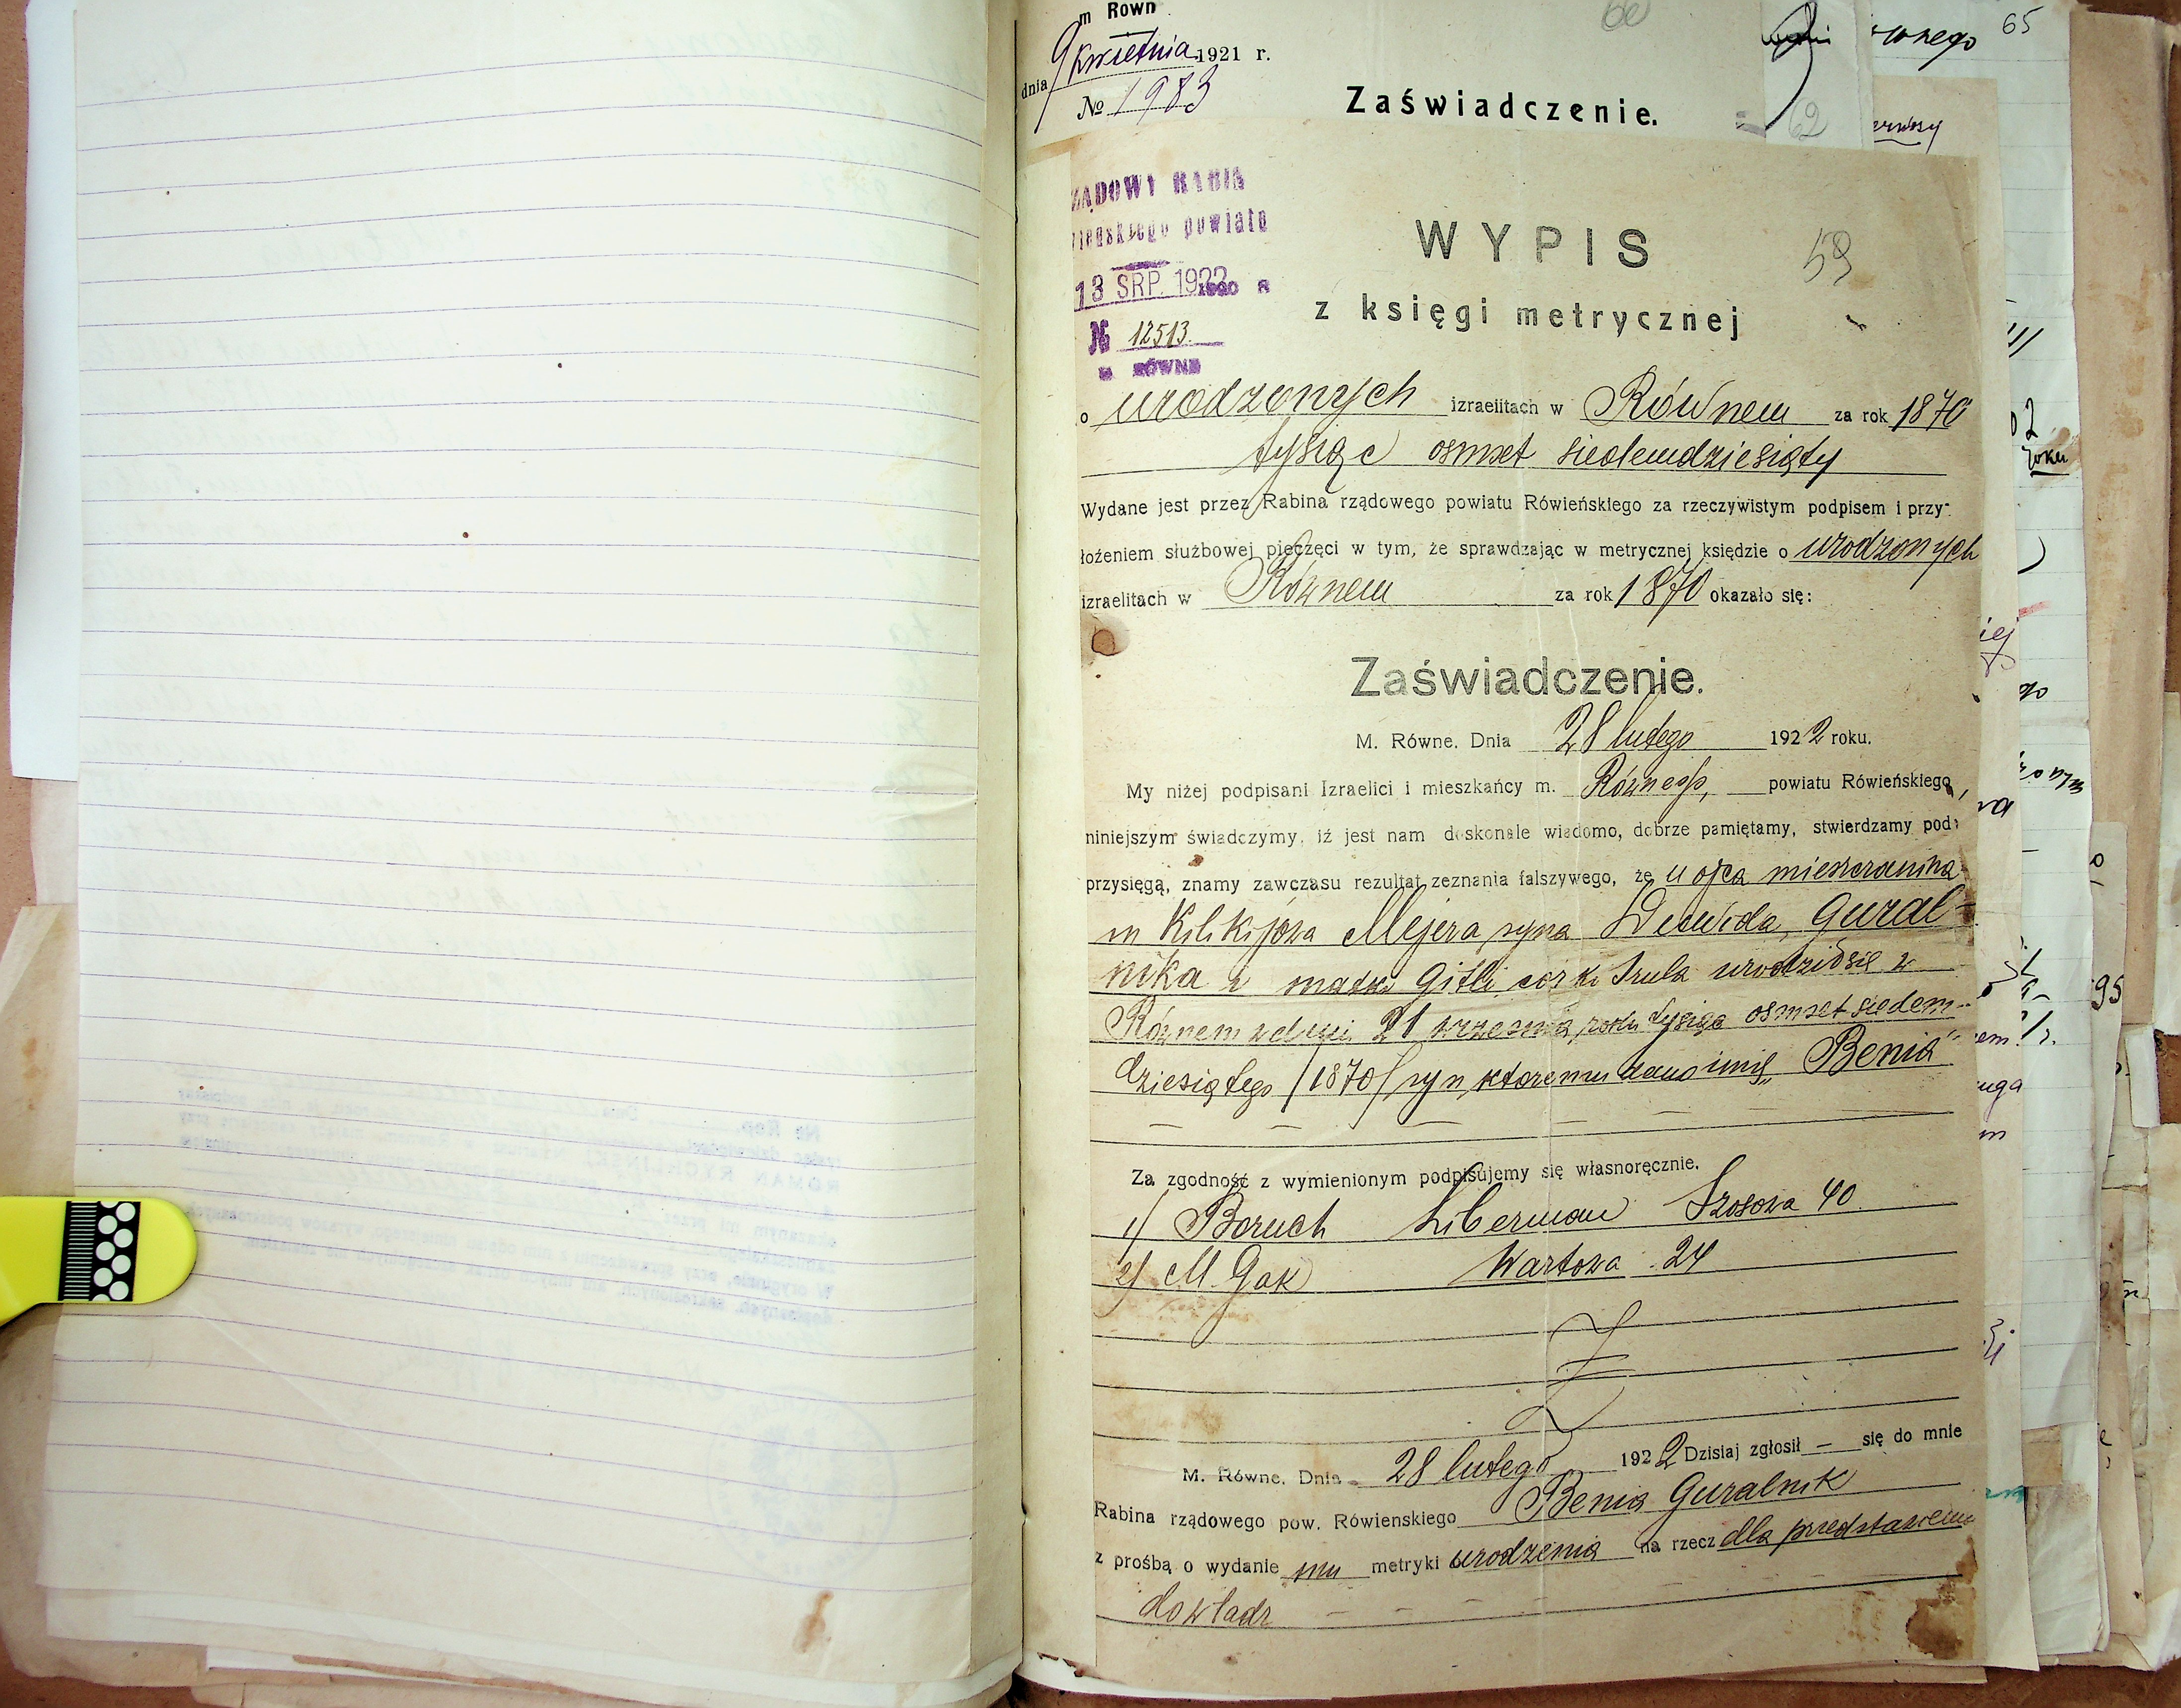 m Rown
dnia 9 kwietnia 1921 r.
№ 1983
Zaświadczenie.
60
62
65
wnego
ZĄDOWY RABIN
powiatu
13 SRP. 1922
№ 12513.
RÓWNE
WYPIS
59
z księgi metrycznej
o urodzonych izraelitach w Równem za rok 1870
tysiąc osmset siedemdziesiąty
Wydane jest przez Rabina rządowego powiatu Rówieńskiego za rzeczywistym podpisem i przy-
łożeniem służbowej pieczęci w tym, że sprawdzając w metrycznej księdzie o urodzonych
izraelitach w Równem za rok 1870 okazało się:
Zaświadczenie.
M. Równe. Dnia 28 lutego 1922 roku.
My niżej podpisani Izraelici i mieszkańcy m. Równego, powiatu Rówieńskiego,
niniejszym świadczymy, iż jest nam doskonale wiadomo, dobrze pamiętamy, stwierdzamy pod
przysięgą, znamy zawczasu rezultat zeznania falszywego, że u ojca mieszczanina
m Kilikijowa Mejera syna Dawida, Gural-
nika i matki Gitli córki Srula urodził się w
Równem w dniu 21 września roku tysiąc osmset siedem-
dziesiątego /1870/ syn, ktoremu dano imię „Benia"
Za zgodność z wymienionym podpisujemy się własnoręcznie.
1/ Boruch Liberman Szosowa 40
2/ M. Gak Wartowa 24
M. Równe. Dnia 28 lutego 1922 Dzisiaj zgłosił — się do mnie
Rabina rządowego pow. Rówienskiego Benia Guralnik
z prośbą o wydanie mu metryki urodzenia na rzecz dla predstawienia
do władz
roku
95